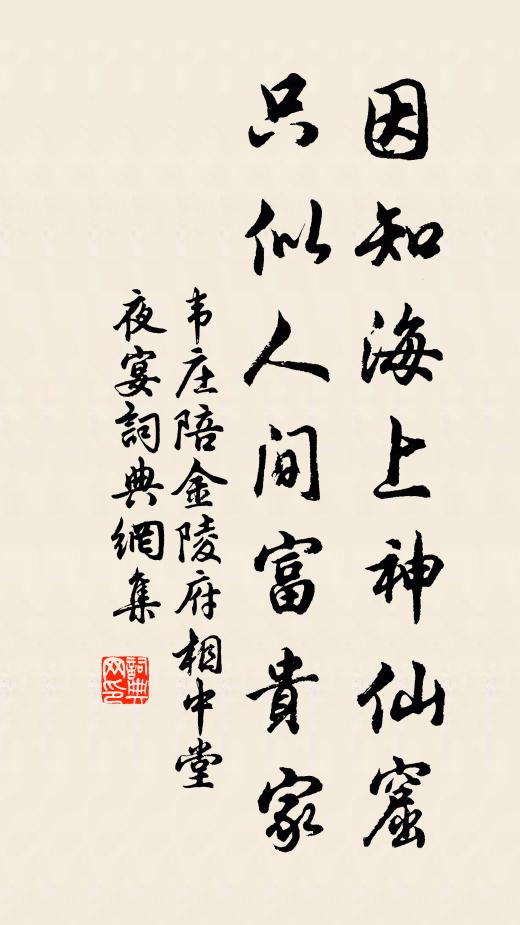 因知海上神仙窟
只似人间富貴家
韦庄陪金陵府相中堂
夜宴詞典網集
詞典
网印